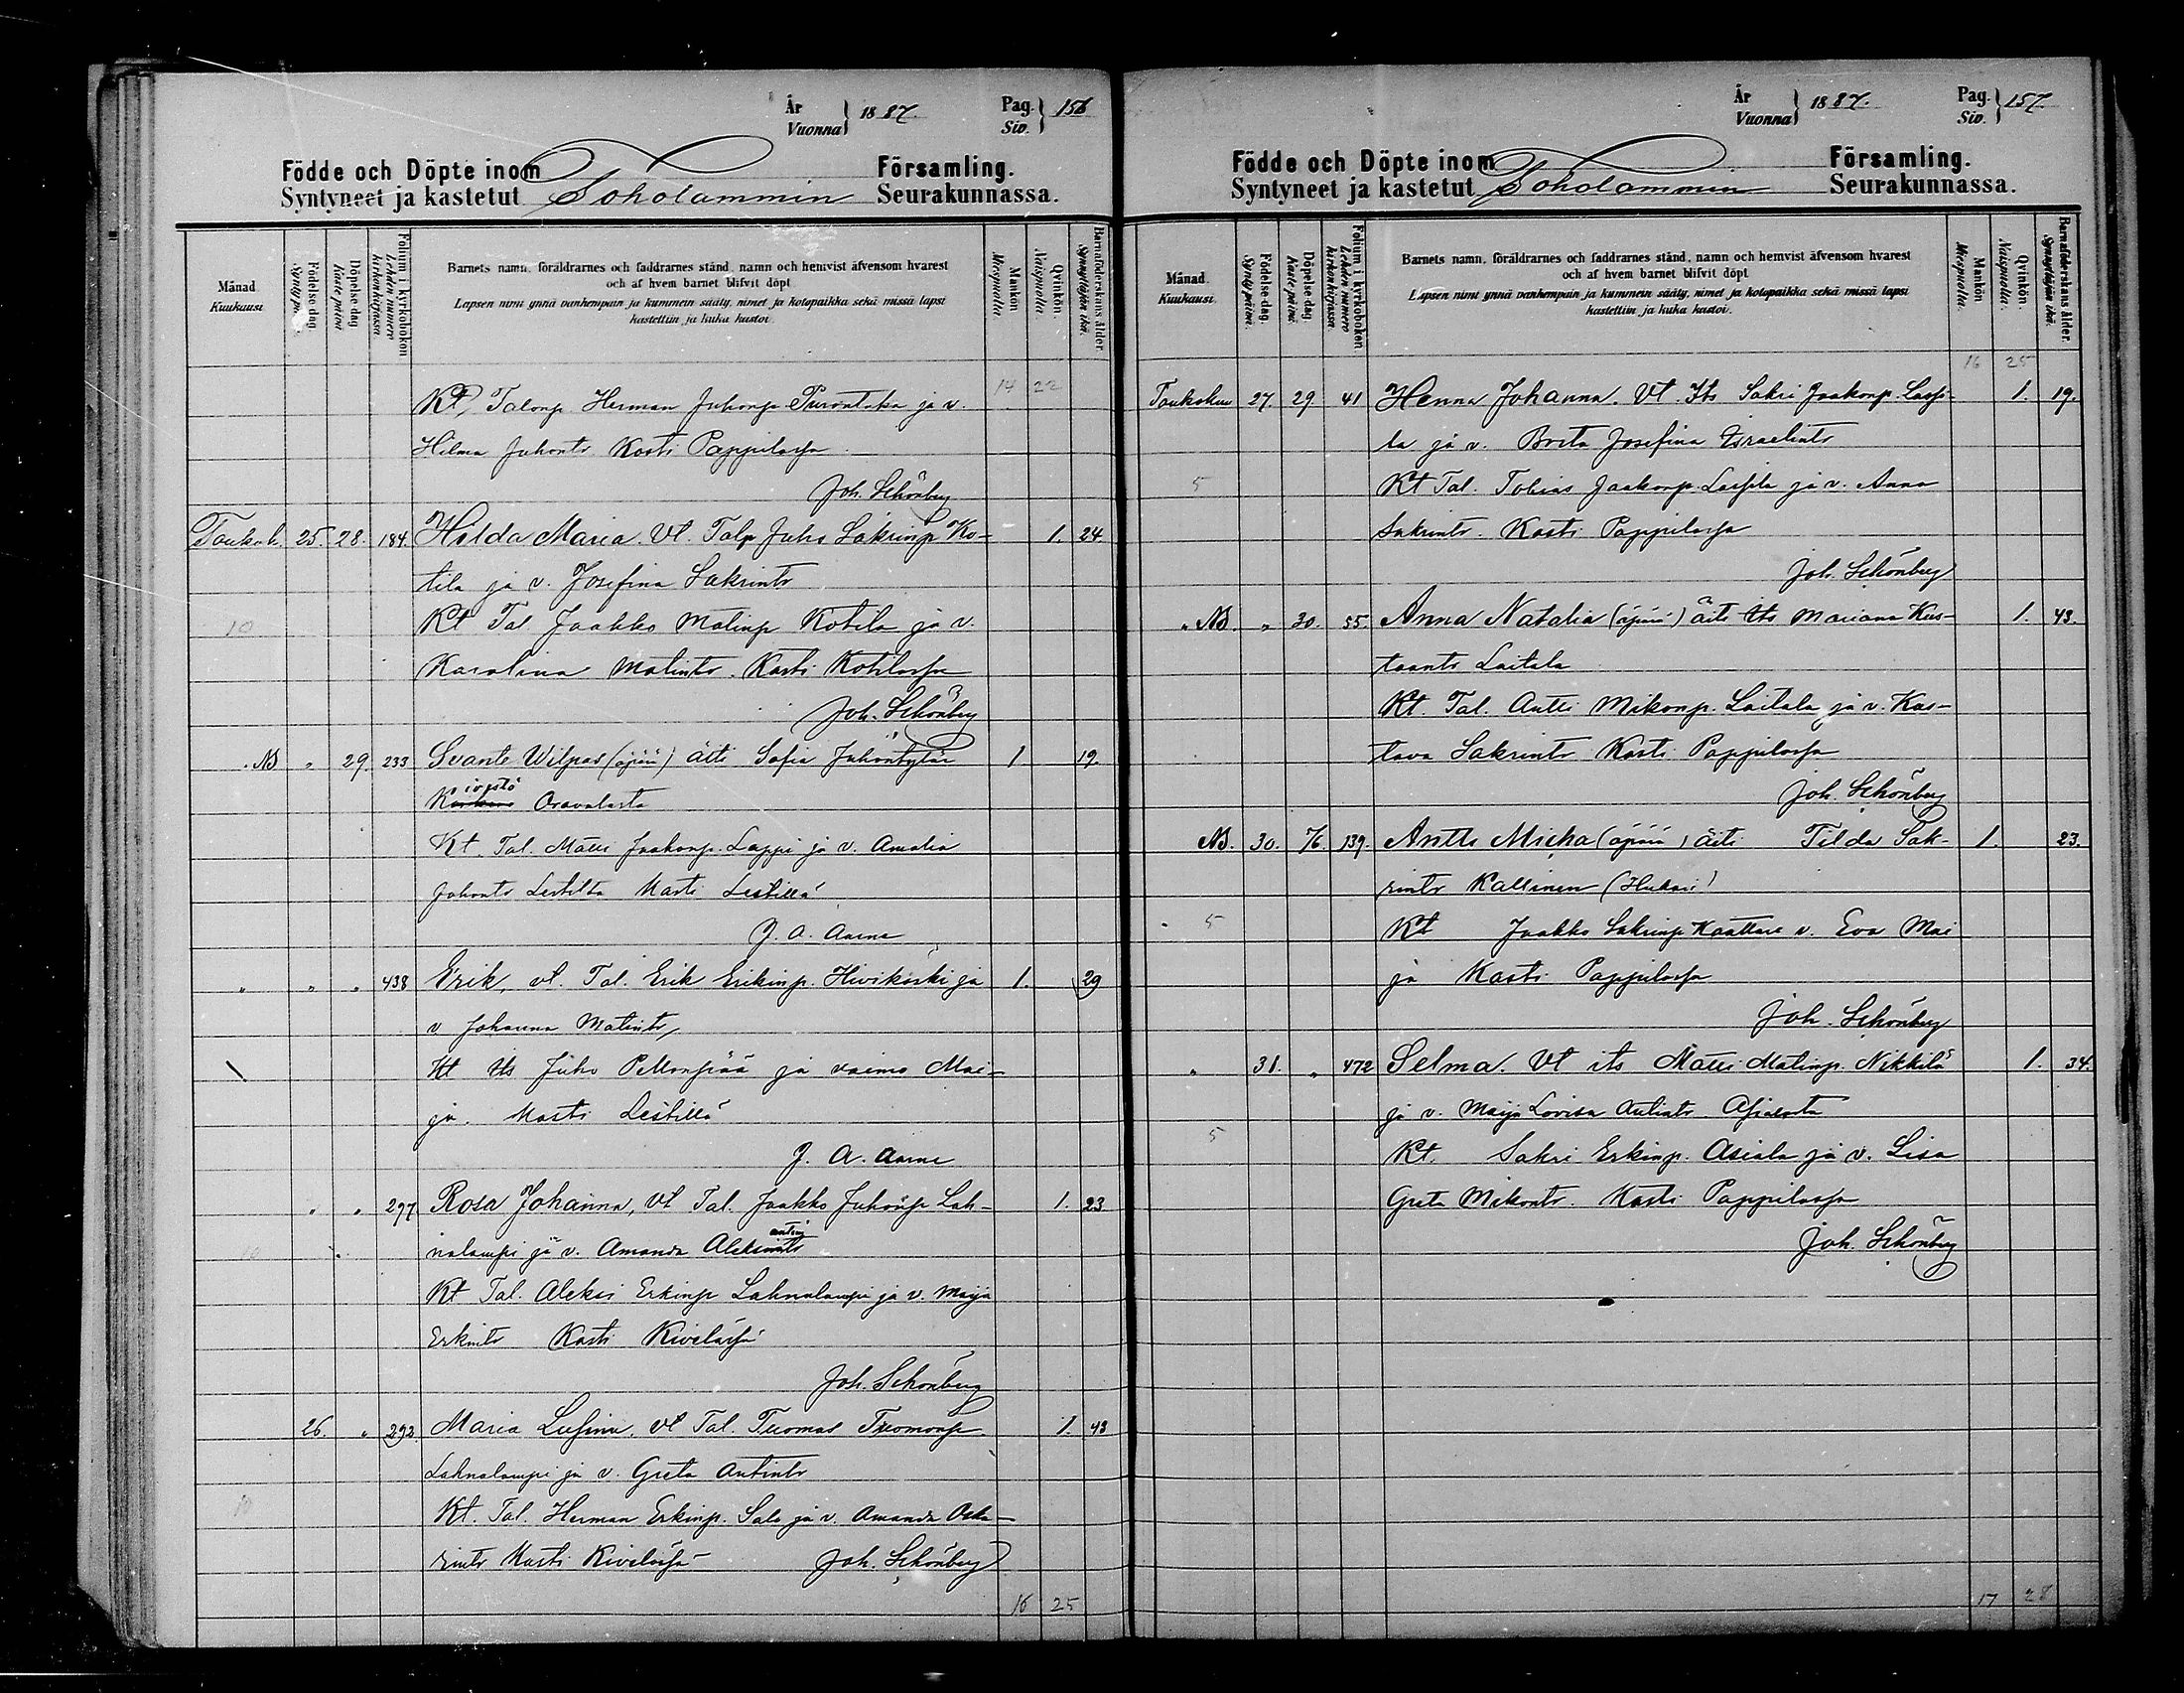 År
Vuonna } 1887.
Pag.
Siv. } 156
Födde och Döpte inom Församling.
Syntyneet ja kastetut Toholammin Seurakunnassa.
Månad
Kuukausi
Födelse-dag.
Synty p.
Döpelse-dag
Kaste päivä
Folium i kyrkobokon
Lehden numero
kirkonkirjassa
Barnets namn, föräldrarnes och faddrarnes stånd, namn och hemvist äfvensom hvarest
och af hvem barnet blifvit döpt
Lapsen nimi ynnä vanhempain ja kummein sääty, nimet ja kotopaikka sekä missä lapsi
kastettiin ja kuka kastoi.
Mankön
Miespuolta
Qvinkön.
Naispuolta
Barnaföderskans ålder.
Synnyttäjän ikä.
14 22
Kt, Talonp Herman Juhonp Purontaka ja v.
Hilma Juhontr Kasti Pappilassa
Joh. Schönberg
Toukok. 25. 28. 184. Hilda Maria. Vt. Talp Juho Sakrinp Ko- 1. 24
tila ja v. Josefina Sakrintr
10 Kt Tal Jaakko Matinp Kotila ja v.
Karolina Matintr. Kasti Kotilassa
Joh. Schönberg
NB " 29. 233 Svante Wilpas (äpärä) äiti Sofia Juhontytär 1 19.
Oravalasta
Kt. Tal. Matti Jaakonp. Lappi ja v. Amalia
Juhontr Lestiltä Kasti Lestillä
J. A. Aarne
" " " 438 Erik, vt. Tal. Erik Erikinp. Hivikoski ja 1. 29
v Johanna Matintr,
Kt Its Juho Peltonpää ja vaimo Mai-
ja. Kasti Lestillä
J. A. Aarne
" " 297 Rosa Johanna, vt Tal. Jaakko Juhonp Lah- 1. 23
antin
10 nalampi ja v. Amanda Aleksintr
Kt Tal. Aleksi Erkinp Lahnalampi ja v. Maija
Erkintr Kasti Kivelässä
Joh. Schönberg
26. " 292. Maria Lusina, vt Tal. Tuomas Tuomonp 1. 43
Lahnalampi ja v. Greta Antintr
10 Kt. Tal. Herman Erkinp. Salo ja v. Amanda Oska-
rintr Kasti Kivelässä Joh. Schönberg
16 25
År
Vuonna } 1887.
Pag.
Siv. } 157.
Födde och Döpte inom Församling.
Syntyneet ja kastetut Toholammin Seurakunnassa.
Månad.
Kuukausi.
Födelse-dag.
Synty päivä.
Döpelse-dag.
Kaste päivä.
Folium i kyrkoboken.
Lehden numero
kirkonkirjassa.
Barnets namn, föräldrarnes och faddrarnes stånd, namn och hemvist äfvensom hvarest
och af hvem barnet blifvit döpt
Lapsen nimi ynnä vanhempain ja kummein sääty, nimet ja kotopaikka sekä missä lapsi
kastettiin ja kuka kastoi.
Mankön
Miespuolta.
Qvinkön.
Naispuolta.
Barnaföderskans ålder.
Synnyttäjän ikä.
16 25
Toukokuu 27. 29. 41 Henna Johanna. Vt. Its Sakri Jaakonp. Lassi- 1. 19.
la ja v. Brita Josefina Israelintr
5 Kt Tal. Tobias Jaakonp. Lassila ja v. Anna
Sakrintr. Kasti Pappilassa
Joh. Schönberg
" NB. " 30. 55. Anna Natalia (äpärä) äiti Its Mariana Kus- 1. 43.
taantr Laitala
Kt. Tal. Antti Mikonp. Laitala ja v. Kus-
tava Sakrintr Kasti Pappilassa
Joh. Schönberg
NB. 30. 7/6. 139. Antti Micha (äpärä) äiti Tilda Sak- 1. 23.
rintr Kallinen (Huhari)
5 Kt Jaakko Sakrinp Kaattari v. Eva Mai
ja Kasti Pappilassa
Joh. Schönberg
" 31. " 472 Selma. Vt its Matti Matinp. Nikkilä 1. 34.
ja v. Maija Lovisa Antintr Asialasta
5 Kt. Sakri Erkinp. Asiala ja v. Lisa
Greta Mikontr. Kasti Pappilassa
Joh. Schönberg
17 28